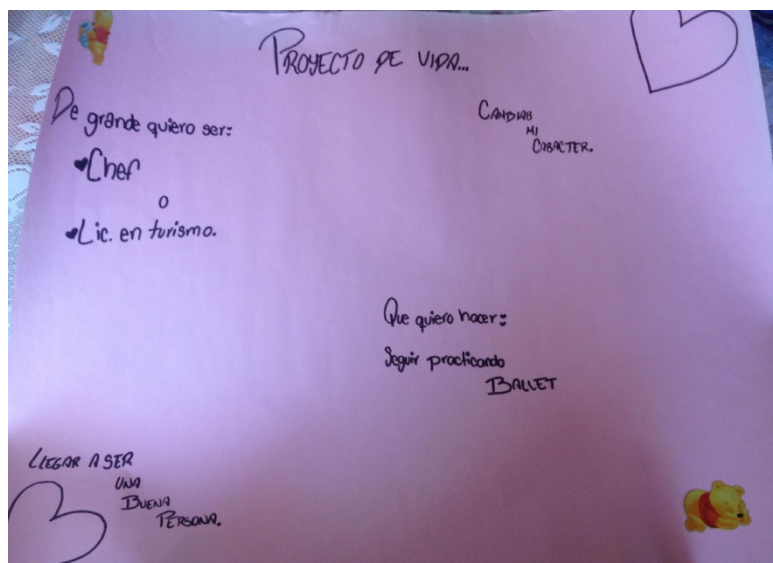 PROYECTO DE VIDA...
De grande quiero ser:
Chef
o
Lic. en turismo.
CAMBIAR
MI
CARACTER.
Que quiero hacer:
Seguir practicando
BALLET
LLEGAR A SER
UNA
BUENA
PERSONA.